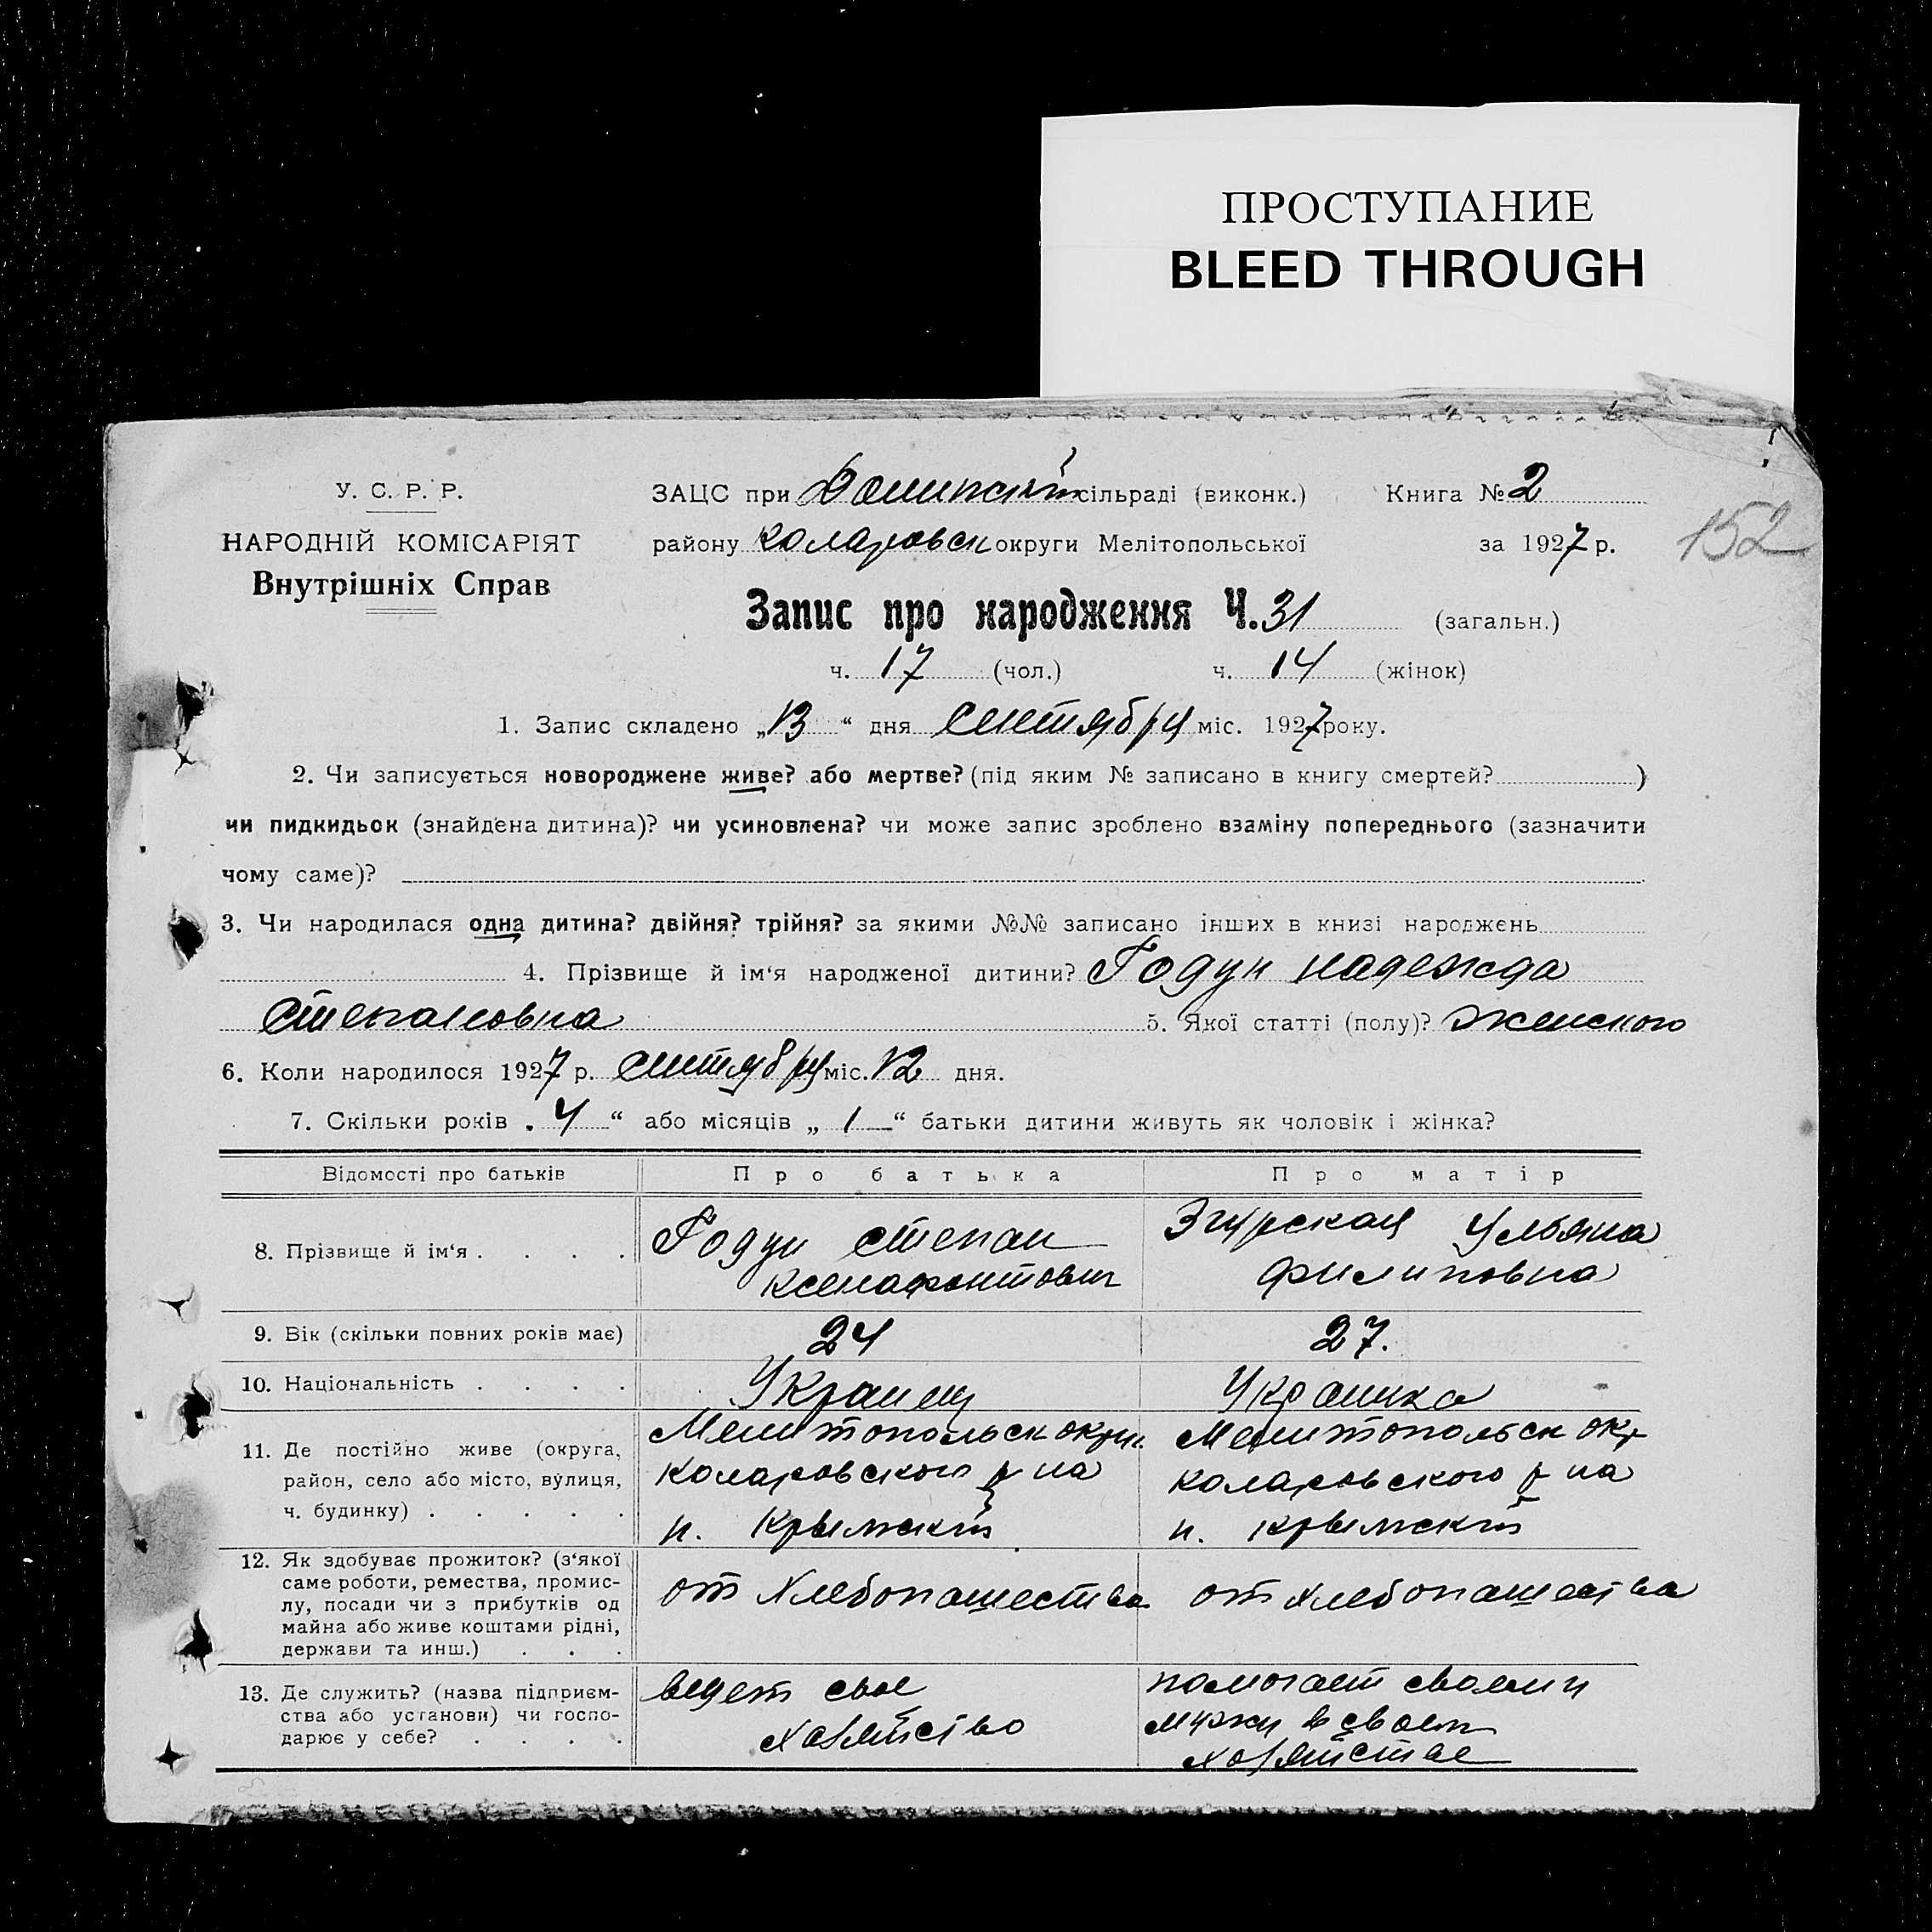 ПРОСТУПАНИЕ
BLEED THROUGH
У. С. Р. Р.
НАРОДНІЙ КОМІСАРІЯТ
Внутрішніх Справ
ЗАЦС при сільраді (виконк.) Книга № 2
району Коларовск округи Мелітопольської за 1927 р.
152
Запис про народження Ч. 31 (загальн.)
ч. 17 (чол.) ч. 14 (жінок)
1. Запис складено „13“ дня Сентября міс. 1927 року.
2. Чи записується новороджене живе? або мертве? (під яким № записано в книгу смертей? )
чи пидкидьок (знайдена дитина)? чи усиновлена? чи може запис зроблено взаміну попереднього (зазначити
чому саме)?
3. Чи народилася одна дитина? двійня? трійня? за якими №№ записано інших в книзі народжень
4. Прізвище й ім‘я народженої дитини? Годун Надежда
Степановна 5. Якої статті (полу)? Женского
6. Коли народилося 1927 р. Сентября міс. 12 дня.
7. Скільки років „4“ або місяців „1“ батьки дитини живуть як чоловік і жінка?
Відомості про батьків Про батька Про матір
8. Прізвище й ім‘я . . . . Годун Степан Ксенафонтович Згурская Ульяна Филиповна
9. Вік (скільки повних років має) 24 27.
10. Національність . . . . Украинец Украинка
11. Де постійно живе (округа, Мелитопольск окр. Мелитопольск окр
район, село або місто, вулиця, Коларовского р на Коларовского р на
ч. будинку) . . . . . п. Крымский п. Крымский
12. Як здобуває прожиток? (з‘якої
саме роботи, ремества, промис-
лу, посади чи з прибутків од от Хлебопашества от хлебопашества
майна або живе коштами рідні,
держави та инш.) . . .
13. Де служить? (назва підприєм- ведет свое помогает своему
ства або установи) чи госпо- хозяйство мужу в своем
дарює у себе? . . . . хозяйстве